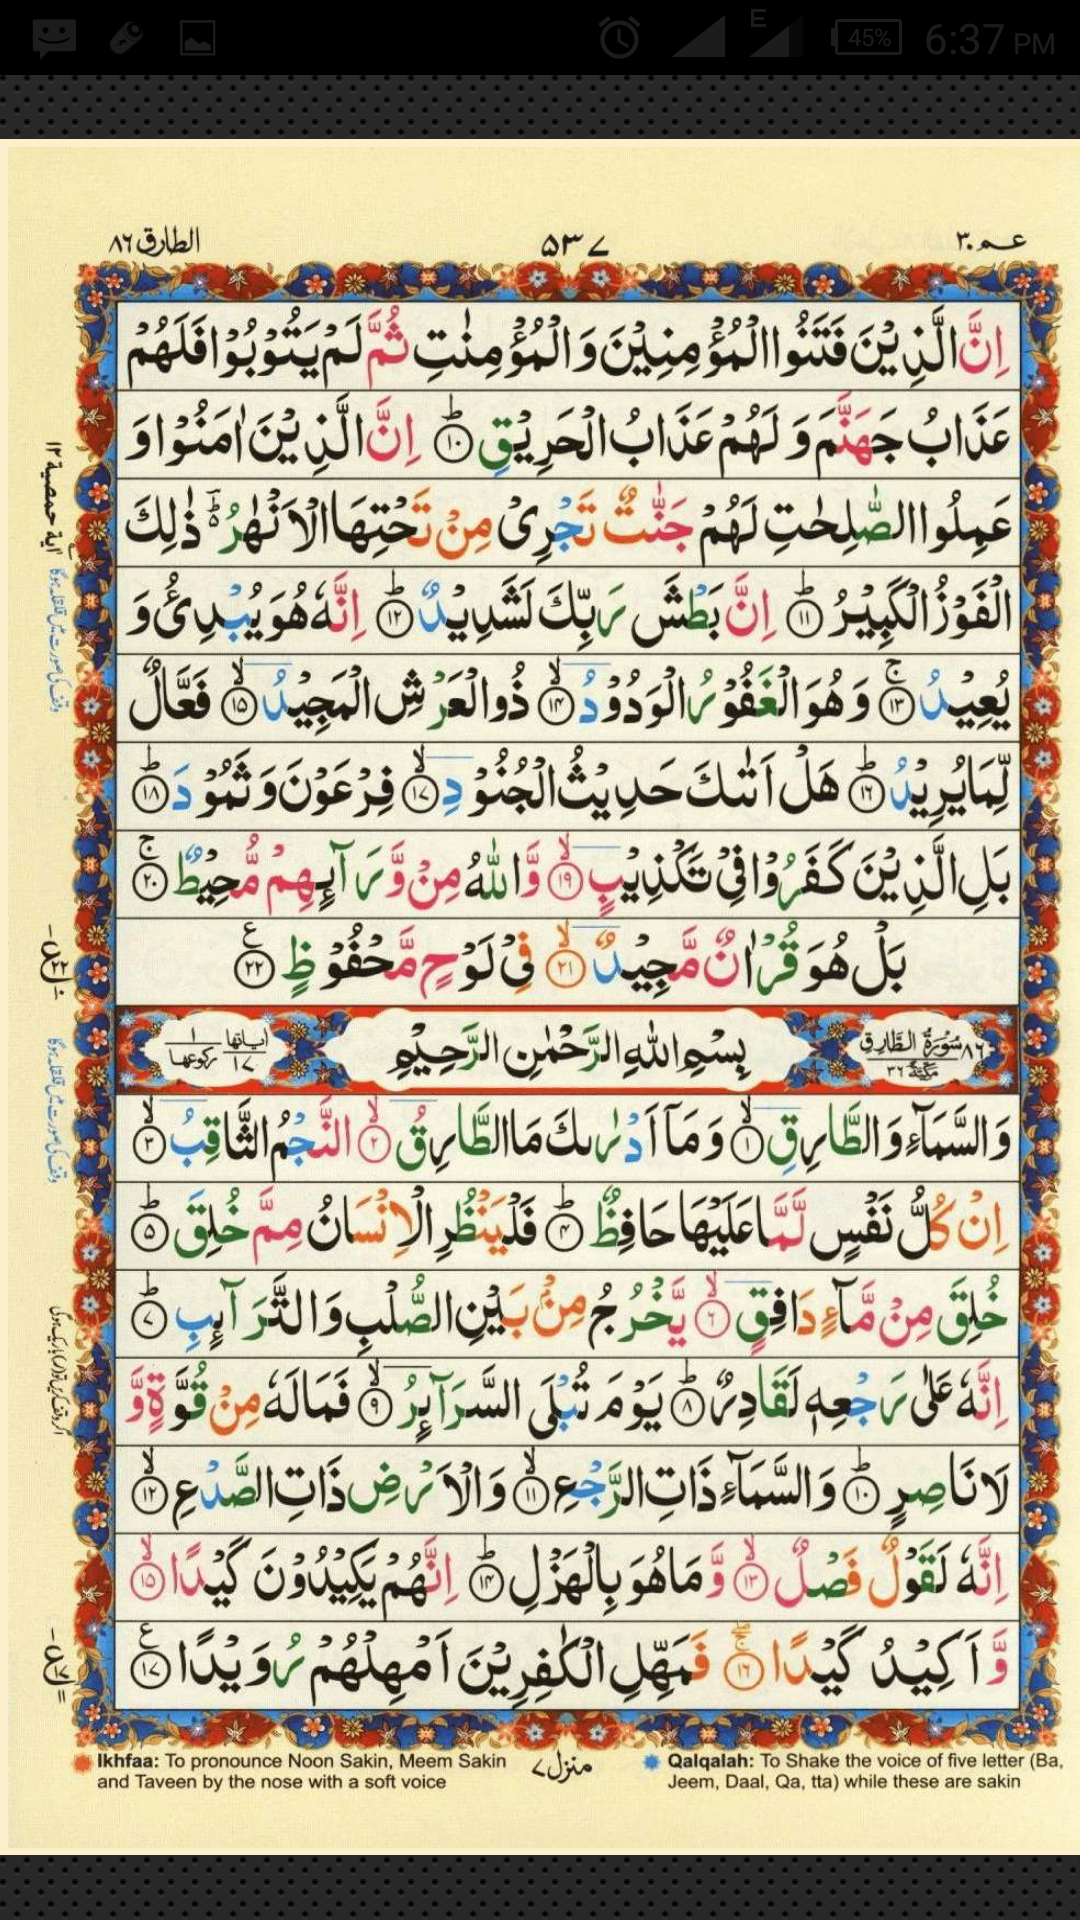 45%
E
6:37 PM
الطارق ٨٦
٥٣٧
عم ٣٠
اِنَّ الَّذِيْنَ فَتَنُوا الْمُؤْمِنِيْنَ وَ الْمُؤْمِنٰتِ ثُمَّ لَمْ يَتُوْبُوْا فَلَهُمْ
عَذَابُ جَهَنَّمَ وَ لَهُمْ عَذَابُ الْحَرِيْقِ ؕ﴿١٠﴾ اِنَّ الَّذِيْنَ اٰمَنُوْا وَ
عَمِلُوا الصّٰلِحٰتِ لَهُمْ جَنّٰتٌ تَجْرِيْ مِنْ تَحْتِهَا الْاَنْهٰرُ ؕ۬ ذٰلِكَ
الْفَوْزُ الْكَبِيْرُ ؕ﴿١١﴾ اِنَّ بَطْشَ رَبِّكَ لَشَدِيْدٌ ؕ﴿١٢﴾ اِنَّهٗ هُوَ يُبْدِئُ وَ
يُعِيْدُ ۚ﴿١٣﴾ وَ هُوَ الْغَفُوْرُ الْوَدُوْدُ ۙ﴿١٤﴾ ذُو الْعَرْشِ الْمَجِيْدُ ۙ﴿١٥﴾ فَعَّالٌ
لِّمَا يُرِيْدُ ؕ﴿١٦﴾ هَلْ اَتٰىكَ حَدِيْثُ الْجُنُوْدِ ۙ﴿١٧﴾ فِرْعَوْنَ وَ ثَمُوْدَ ؕ﴿١٨﴾
بَلِ الَّذِيْنَ كَفَرُوْا فِيْ تَكْذِيْبٍ ۙ﴿١٩﴾ وَّ اللّٰهُ مِنْ وَّرَآئِهِمْ مُّحِيْطٌ ۚ﴿٢٠﴾
بَلْ هُوَ قُرْاٰنٌ مَّجِيْدٌ ۙ﴿٢١﴾ فِيْ لَوْحٍ مَّحْفُوْظٍ ﴿٢٢﴾ ع
٨٦ سُوْرَةُ الطَّارِقِ مَكِّيَّةٌ ٣٦
بِسْمِ اللّٰهِ الرَّحْمٰنِ الرَّحِيْمِ
اٰياتها ١٧ ركوعها ١
وَ السَّمَآءِ وَ الطَّارِقِ ۙ﴿١﴾ وَ مَاۤ اَدْرٰىكَ مَا الطَّارِقُ ۙ﴿٢﴾ النَّجْمُ الثَّاقِبُ ۙ﴿٣﴾
اِنْ كُلُّ نَفْسٍ لَّمَّا عَلَيْهَا حَافِظٌ ؕ﴿٤﴾ فَلْيَنْظُرِ الْاِنْسَانُ مِمَّ خُلِقَ ؕ﴿٥﴾
خُلِقَ مِنْ مَّآءٍ دَافِقٍ ۙ﴿٦﴾ يَّخْرُجُ مِنْۢ بَيْنِ الصُّلْبِ وَ التَّرَآئِبِ ؕ﴿٧﴾
اِنَّهٗ عَلٰى رَجْعِهٖ لَقَادِرٌ ؕ﴿٨﴾ يَوْمَ تُبْلَى السَّرَآئِرُ ۙ﴿٩﴾ فَمَا لَهٗ مِنْ قُوَّةٍ وَّ
لَا نَاصِرٍ ؕ﴿١٠﴾ وَ السَّمَآءِ ذَاتِ الرَّجْعِ ۙ﴿١١﴾ وَ الْاَرْضِ ذَاتِ الصَّدْعِ ۙ﴿١٢﴾
اِنَّهٗ لَقَوْلٌ فَصْلٌ ۙ﴿١٣﴾ وَّ مَا هُوَ بِالْهَزْلِ ؕ﴿١٤﴾ اِنَّهُمْ يَكِيْدُوْنَ كَيْدًا ۙ﴿١٥﴾
وَّ اَكِيْدُ كَيْدًا ۚۖ﴿١٦﴾ فَمَهِّلِ الْكٰفِرِيْنَ اَمْهِلْهُمْ رُوَيْدًا ﴿١٧﴾ ع
Ikhfaa: To pronounce Noon Sakin, Meem Sakin
and Taveen by the nose with a soft voice
منزل ٧
Qalqalah: To Shake the voice of five letter (Ba,
Jeem, Daal, Qa, tta) while these are sakin